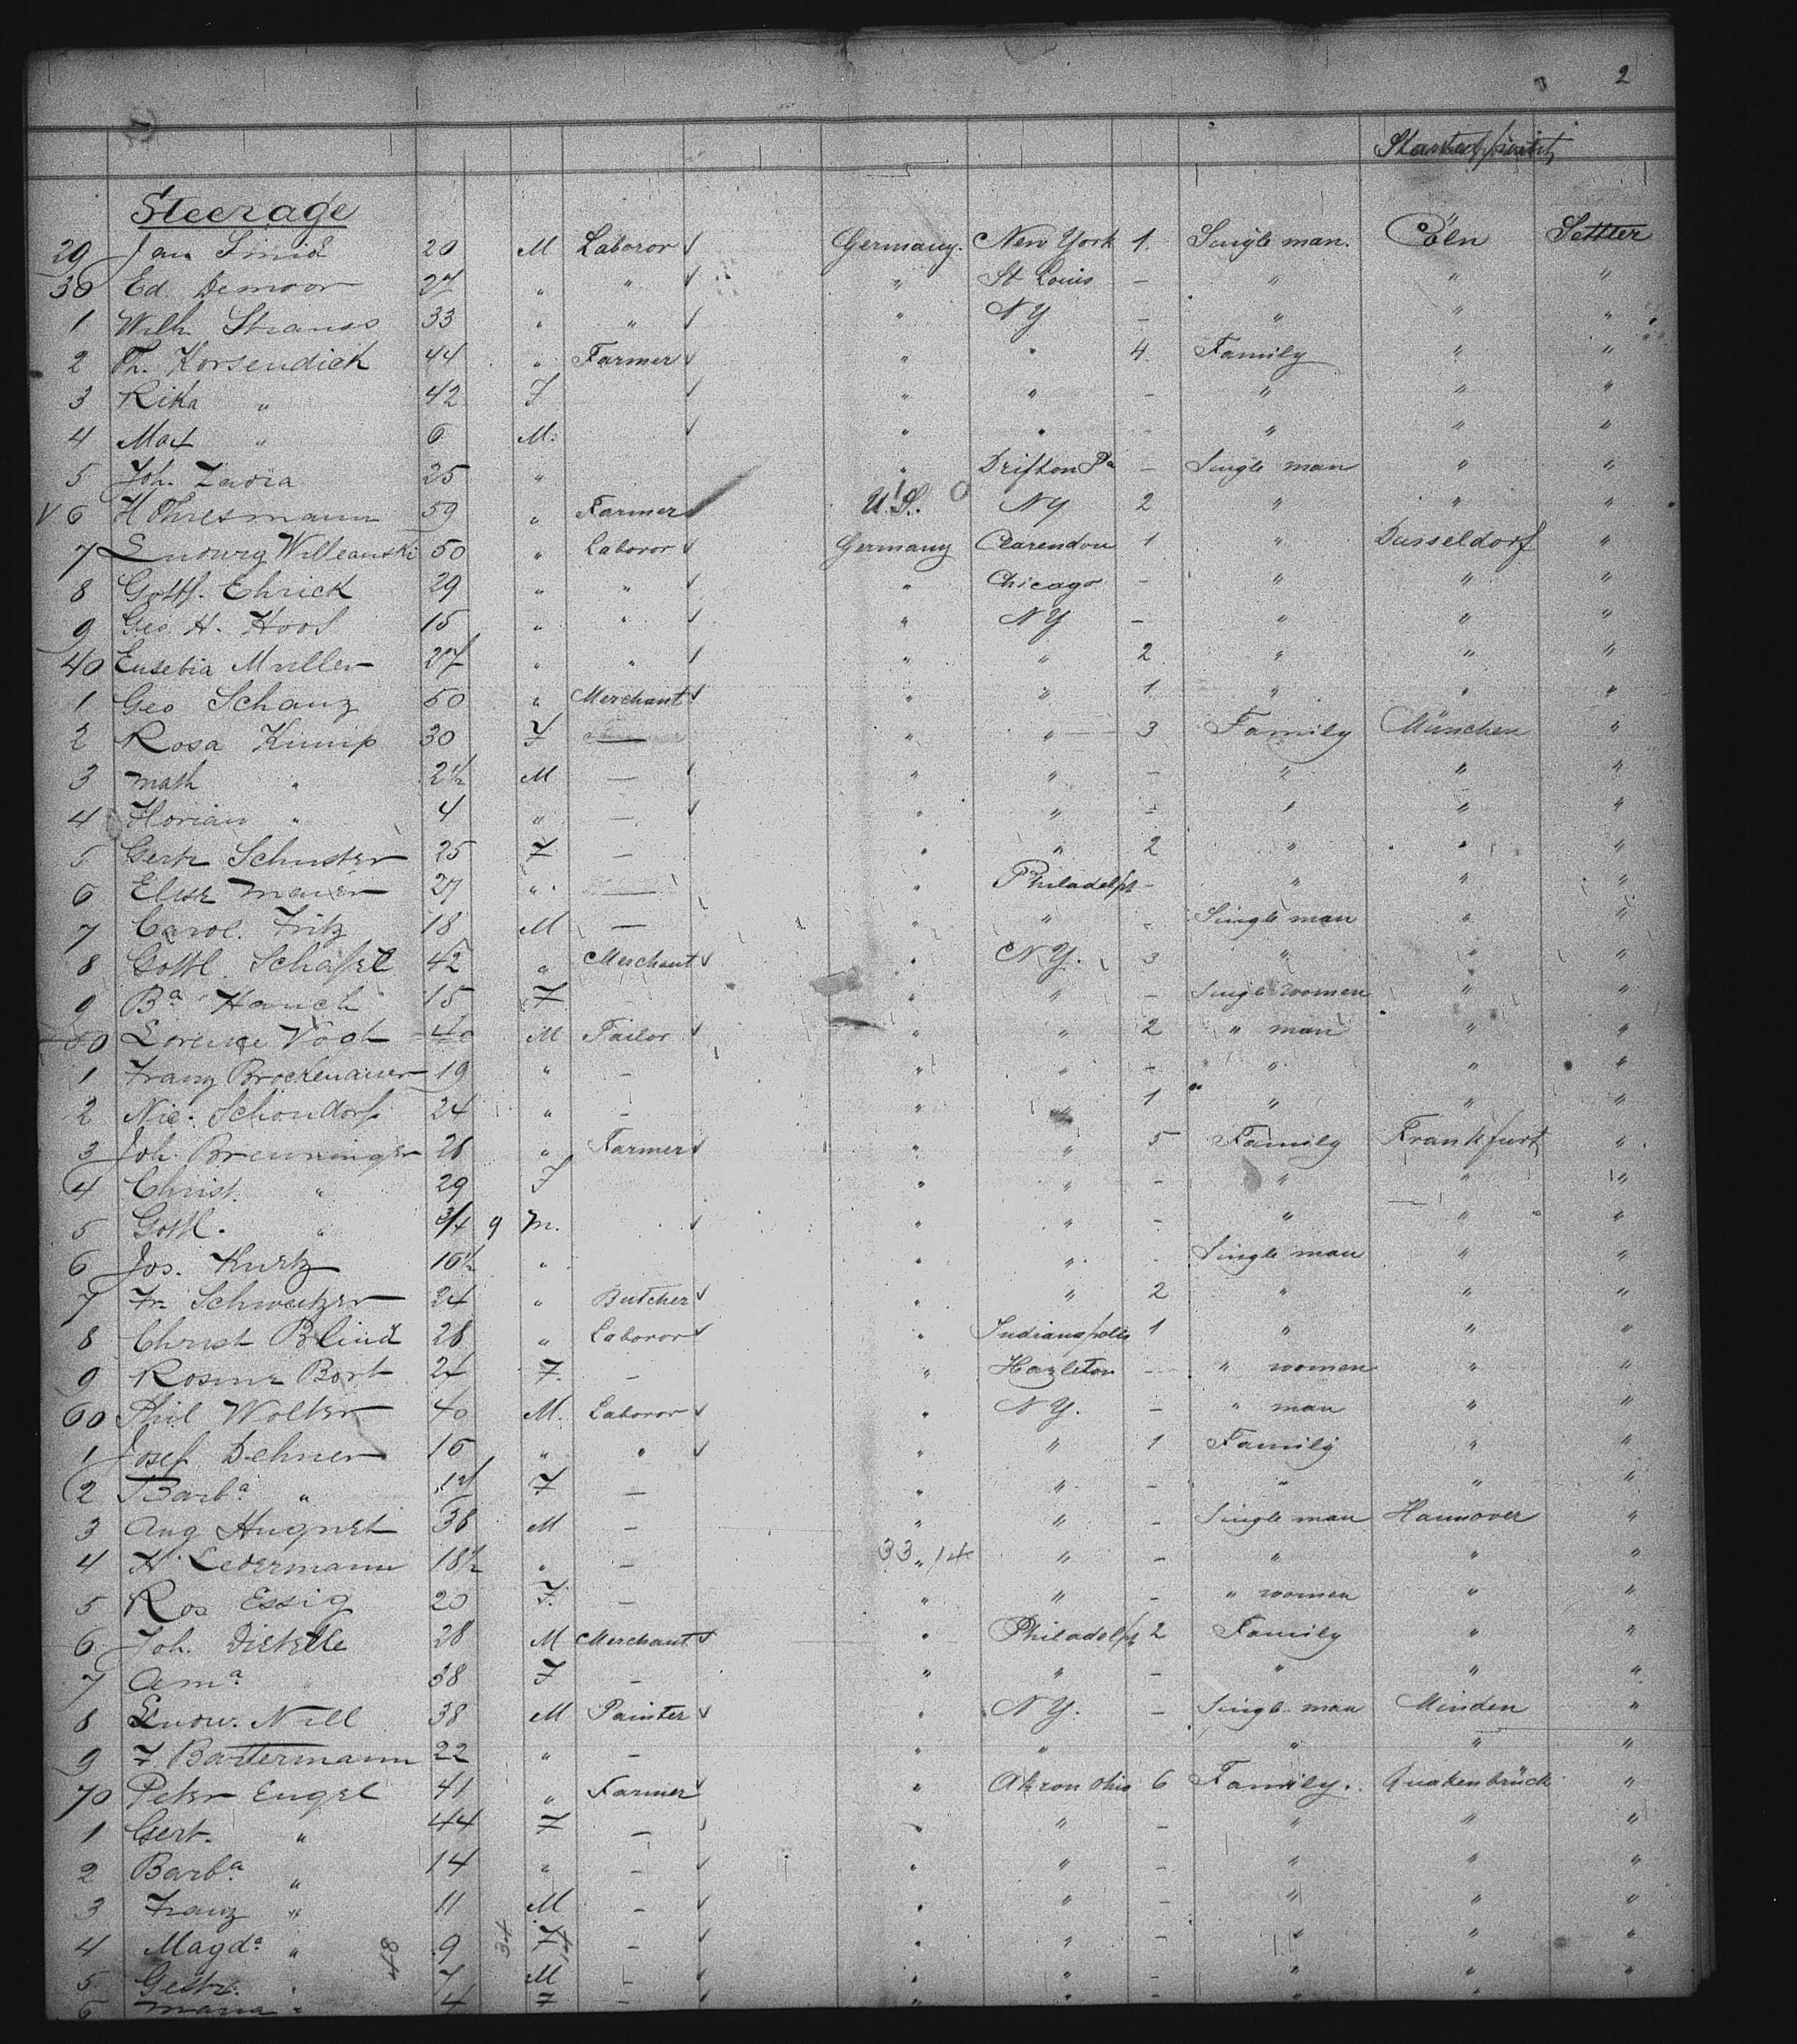 2
Started from
Steerage
29 Jan Smid 20 M Laboror ✓ Germany. New York 1. Single man. Cöln Settler
30 Ed. Demoor 27 " " ✓ " St Louis - " " "
1 Wilh. Strauss 33 " " ✓ " NY - " " "
2 Th. Korsendick 44 " Farmer ✓ " " 4 Family " "
3 Rika " 42 F ✓ " " - " " "
4 Max " 6 M. ✓ " " - " " "
5 Joh. Zavora 25 " " Drifton Pa - Single man " "
✓ 6 H 59 " Farmer U.S. 0 NY 2 " " "
7 Ludwig 50 " Laboror ✓ Germany Clarendon 1 " Dusseldorf "
8 Gottf. Ehrick 29 " " ✓ " Chicago - " " "
9 Geo. H. Hoof 15 " " ✓ " NY - " " "
40 Eusebia Muller 27 " " ✓ " " 2 " " "
1 Geo Schanz 50 " Merchant ✓ " " 1 " " "
2 Rosa Kimip 30 F — " " 3 Family München "
3 Math " 2½ M — ✓ " " - " " "
4 Florian " 4 " — ✓ " " - " " "
5 Gertr Schuster 25 F — " " 2 " " "
6 Elise Maier 27 " — " Philadelph - " " "
7 Carol. Fritz 18 M — " " - Single man " "
8 Gottl. Schafel 42 " Merchant ✓ " NY. 3 " " "
9 Ba Hauch 15 F - " " - Single women " "
50 Lorenze Vogt 40 M Tailor ✓ " " 2 " man " "
1 Franz Brockenauer 19 " - " " - " " "
2 Nic. Schöndorf 24 " - " " 1 " " "
3 Joh. Breuninger 28 " Farmer ✓ " " 5 Family Frankfurt "
4 Christ. " 29 F " " - " " "
5 Gottl. " ¾ 9 M. ✓ " " - " " "
6 Jos. Kurtz 16½ " " " - Single man " "
7 Fr. Schweitzer 24 " Butcher ✓ " " 2 " " "
8 Christ Blind 28 " Laboror ✓ " Indianapolis 1 " " "
9 Rosine Bort 24 F. - " Hazleton - " women " "
60 Phil Wolter 40 M. Laboror ✓ " NY. - " man " "
1 Josef Dehner 16 " " ✓ " " 1 Family " "
2 Barba " F - " " - " " "
3 Aug Hugnet 38 M - " " - Single man Hannover "
4 H. Ledermann 18½ " - 33 " 14 " - " " "
5 Ros Essig 20 F. - " " - " women " "
6 Joh. Dietelle 28 M Merchant ✓ " Philadelph 2 Family " "
7 Ama " 38 F - " " - " " "
8 Ludw. Nill 38 M Painter ✓ " NY. - Single man Minden "
9 F Bartermann 22 " - " " " " "
70 Peter Engel 41 " Farmer ✓ " Akron Ohio 6 Family. Quakenbrück "
1 Gert. " 44 F - ✓ " " - " " "
2 Barba " 14 " - ✓ " " - " " "
3 Franz " 11 M - ✓ " " - " " "
4 Magda " 48 9 34 F 14 - ✓ " " - " " "
5 " 7 M - ✓ " " - " " "
6 Maria " 4 F - ✓ " " - " " "